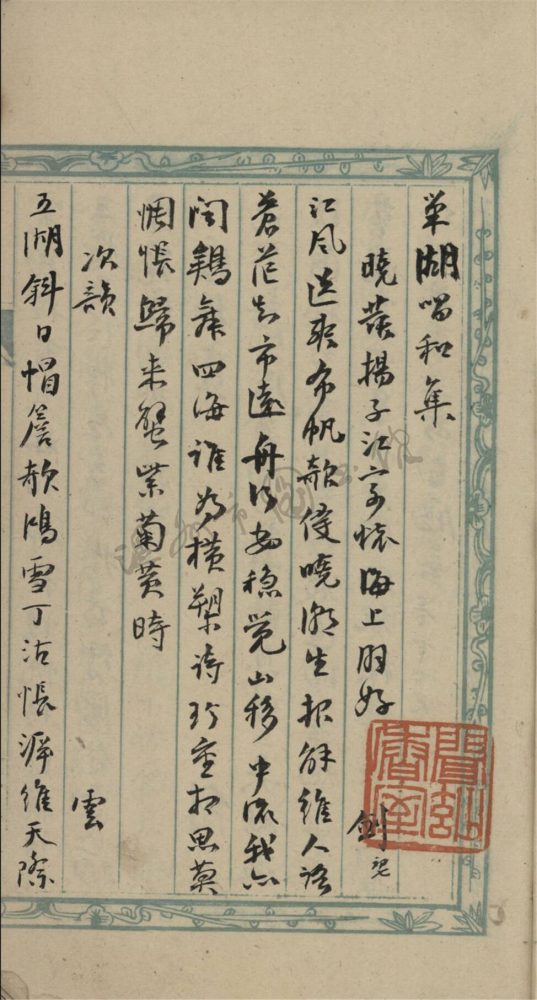 湖唱和集
曉發揚子江寄懷海上朋好 劍
江風送爽布帆欹侵曉潮生報解維人語
蒼茫知市遠舟行安穩覺山移中流我亦
聞鷄舞四海誰為橫槊詩珍重相思莫
惆悵歸來蟹紫菊黃時
次韻 雲
五湖斜日帽簷欹鴻雪丁沽悵溯維天際
溫州市圖書館